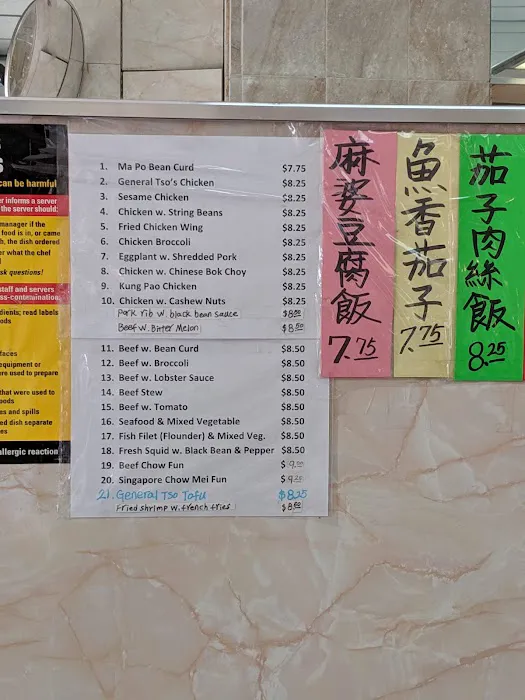 S
can be harmful
er informs a server
the server should:
manager if the
food is in, or came
h, the dish ordered
er what the chef
sk questions!
staff and servers
ss-contamination:
dients; read labels
ods
faces
equipment or
ere used to prepare
that were used to
oods
es and spills
ed dish separate
es
allergic reaction
1. Ma Po Bean Curd $7.75
2. General Tso's Chicken $8.25
3. Sesame Chicken $8.25
4. Chicken w. String Beans $8.25
5. Fried Chicken Wing $8.25
6. Chicken Broccoli $8.25
7. Eggplant w. Shredded Pork $8.25
8. Chicken w. Chinese Bok Choy $8.25
9. Kung Pao Chicken $8.25
10. Chicken w. Cashew Nuts $8.25
Pork rib w. black bean sauce
Beef w. Bitter Melon
11. Beef w. Bean Curd $8.50
12. Beef w. Broccoli $8.50
13. Beef w. Lobster Sauce $8.50
14. Beef Stew $8.50
15. Beef w. Tomato $8.50
16. Seafood & Mixed Vegetable $8.50
17. Fish Filet (Flounder) & Mixed Veg. $8.50
18. Fresh Squid w. Black Bean & Pepper $8.50
19. Beef Chow Fun
20. Singapore Chow Mei Fun
21. General Tso Tofu $8.25
Fried shrimp w. french fries
麻婆豆腐飯
7.75
魚香茄子
7.75
茄子肉絲飯
8.25